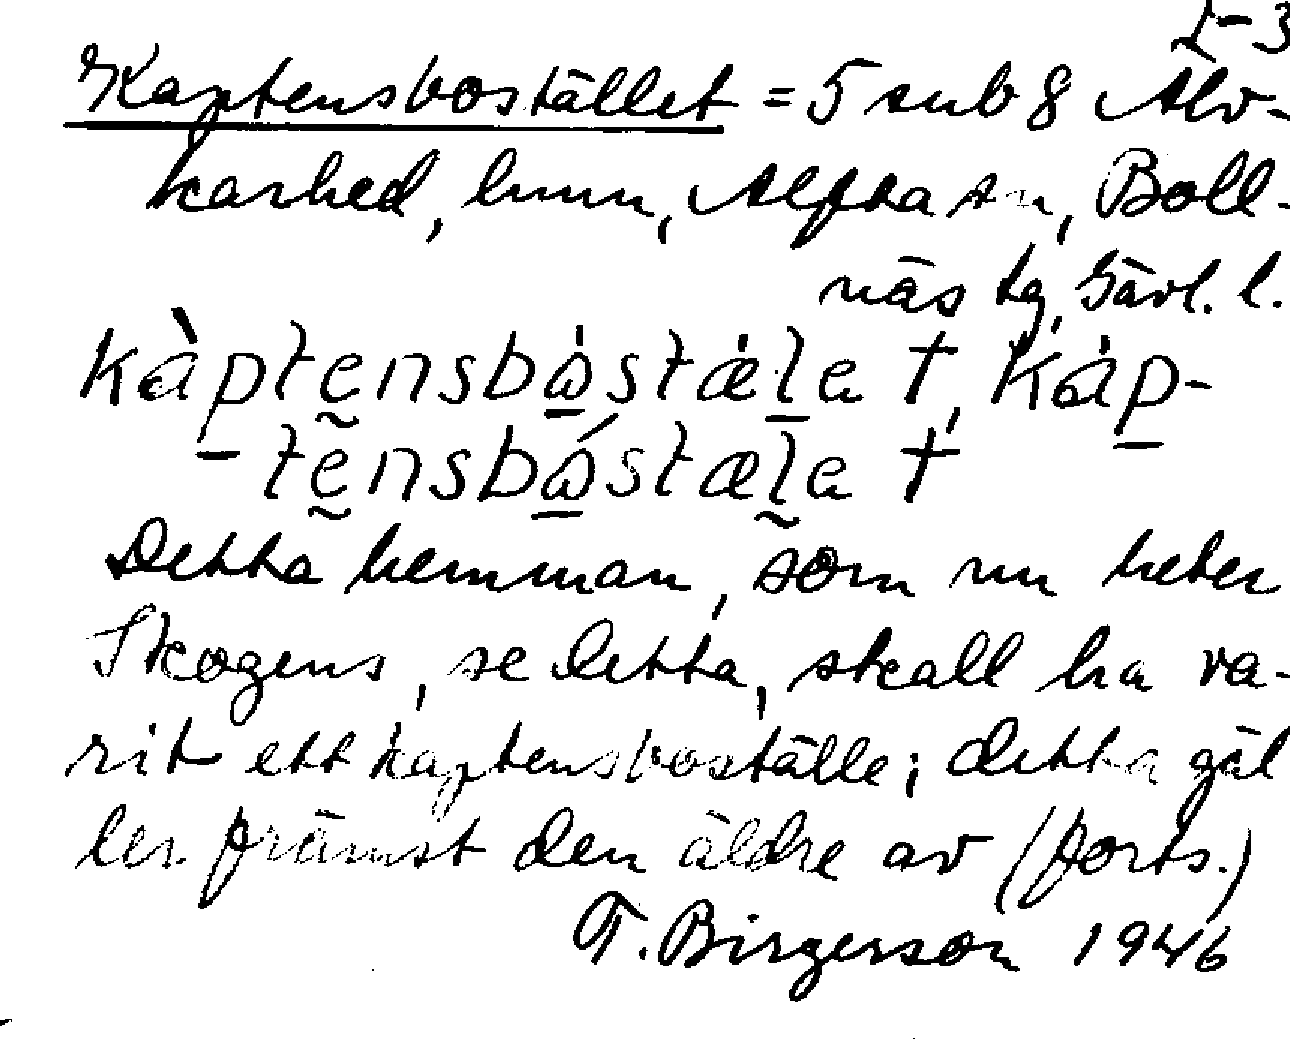 I-3
Kaptensbostället = 5 sub 8 Alv-
karhed, hmn, Alfta sn, Boll-
näs tg, Gävl. l.
kàptensbåstäla †, káp-
tensbåstæla †
Detta hemman, som nu heter
Skogens, se detta, skall ha va-
rit ett kaptensboställe; detta gäl
ler främst den äldre av (forts.)
T. Birgerson 1946